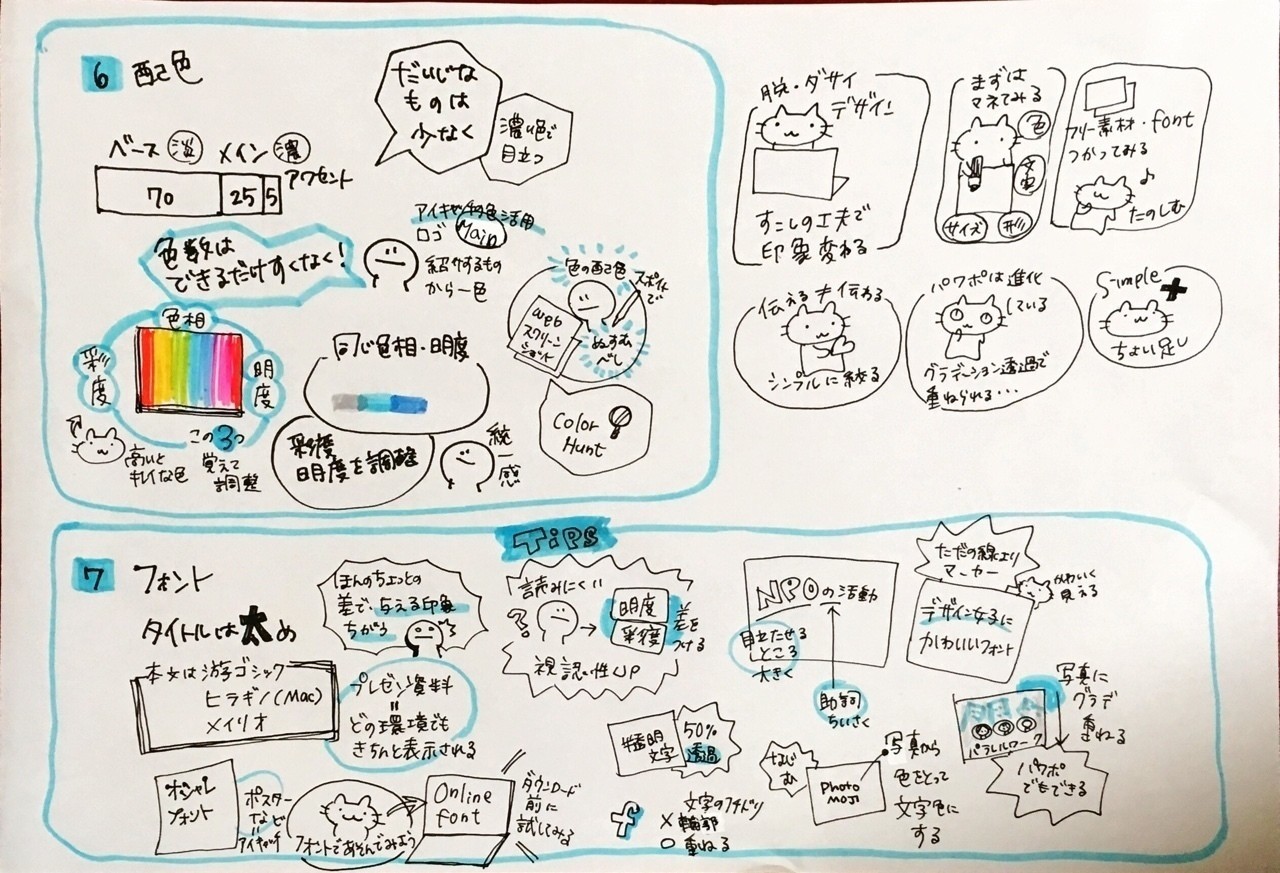 6 配色
だいじな
ものは
少なく
濃い色で
目立つ
ベース 淡 メイン 濃
アクセント
70 25 5
色数は
できるだけすくなく!
アイキャッチの色活用
ロゴ Main
紹介するもの
から一色
色の配色
スポイトで
web
スクリーン
ショット
ぬすむ
べし
色相
彩度
明度
この3つ
覚えて
調整
高いと
キレイな色
同じ色相・明度
彩度
明度を調整
統一感
Color
Hunt
脱・ダサイ
デザイン
すこしの工夫で
印象変わる
まずは
マネてみる
色
文字
サイズ
形
フリー素材・font
つかってみる
たのしむ
伝える≠伝わる
シンプルに絞る
パワポは進化
している
グラデーション透過で
重ねられる…
Simple+
ちょい足し
7 フォント
タイトルは太め
本文は游ゴシック
ヒラギノ(Mac)
メイリオ
ほんのちょっとの
差で、与える印象
ちがう
プレゼン資料
=
どの環境でも
きちんと表示される
オシャレ
フォント
ポスター
など
アイキャッチ
フォントであそんでみよう
Online
font
ダウンロード
前に
試してみる
TiPS
読みにくい
?
明度
彩度
差を
つける
視認性UP
NPOの活動
目立たせる
ところ
大きく
助詞
ちいさく
ただの線より
マーカー
かわいく
見える
デザイン女子に
かわいいフォント
#透明
文字
50%
透過
f
文字のフチドリ
×輪郭
○重ねる
なじ
む
Photo
MOJI
写真から
色をとって
文字色に
する
写真に
グラデ
重ねる
パラレルワーク
パワポ
でもできる